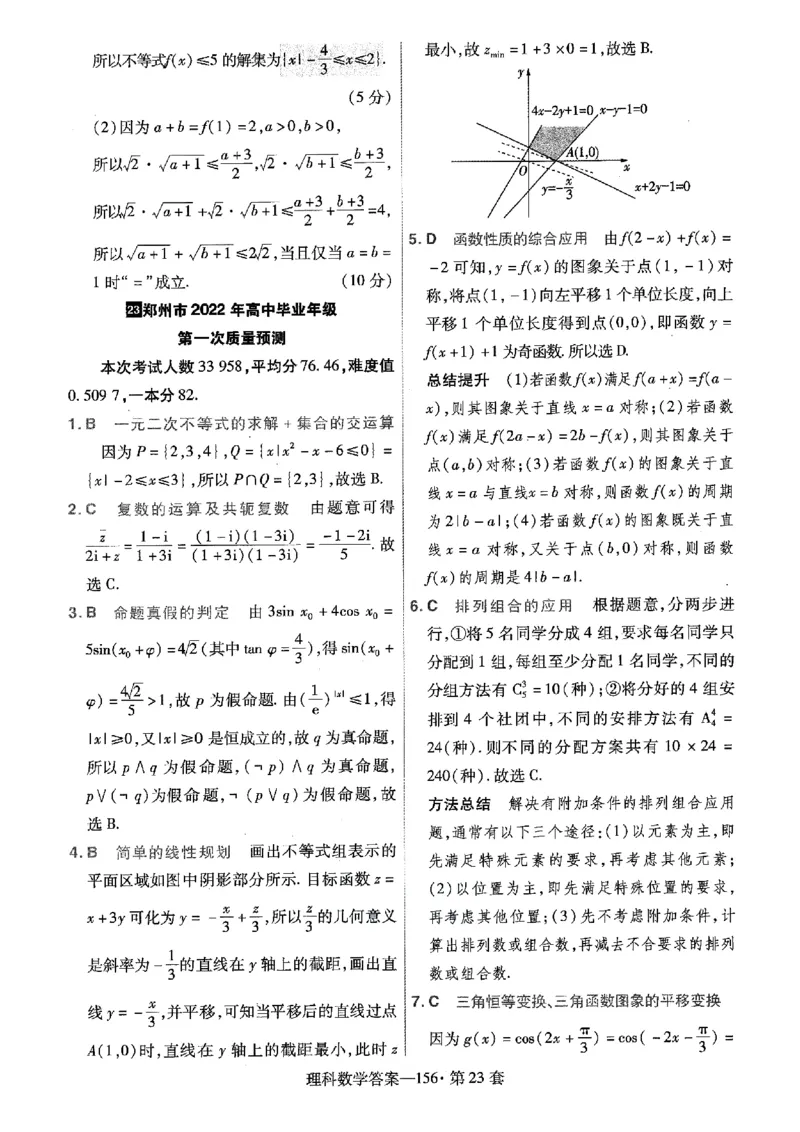 所以不等式f(x)≤5的解集为{x|-4/3≤x≤2}.
(5分)
(2)因为a+b=f(1)=2,a>0,b>0,
所以√2·√(a+1)≤(a+3)/2,√2·√(b+1)≤(b+3)/2,
所以√2·√(a+1)+√2·√(b+1)≤(a+3)/2+(b+3)/2=4,
所以√(a+1)+√(b+1)≤2√2,当且仅当a=b=
1时“=”成立. (10分)
23郑州市2022年高中毕业年级
第一次质量预测
本次考试人数33 958,平均分76.46,难度值
0.509 7,一本分82.
1.B 一元二次不等式的求解+集合的交运算
因为P={2,3,4},Q={x|x²-x-6≤0}=
{x|-2≤x≤3},所以P∩Q={2,3},故选B.
2.C 复数的运算及共轭复数 由题意可得
z̄/(2i+z)=(1-i)/(1+3i)=(1-i)(1-3i)/((1+3i)(1-3i))=(-1-2i)/5.故
选C.
3.B 命题真假的判定 由3sin x₀+4cos x₀=
5sin(x₀+φ)=4√2(其中tan φ=4/3),得sin(x₀+
φ)=4√2/5>1,故p为假命题.由(1/e)^|x|≤1,得
|x|≥0,又|x|≥0是恒成立的,故q为真命题,
所以p∧q为假命题,(¬p)∧q为真命题,
p∨(¬q)为假命题,¬(p∨q)为假命题,故
选B.
4.B 简单的线性规划 画出不等式组表示的
平面区域如图中阴影部分所示.目标函数z=
x+3y可化为y=-x/3+z/3,所以z/3的几何意义
是斜率为-1/3的直线在y轴上的截距,画出直
线y=-x/3,并平移,可知当平移后的直线过点
A(1,0)时,直线在y轴上的截距最小,此时z
最小,故z_min=1+3×0=1,故选B.
y
4x-2y+1=0 x-y-1=0
A(1,0)
O x
y=-x/3 x+2y-1=0
5.D 函数性质的综合应用 由f(2-x)+f(x)=
-2可知,y=f(x)的图象关于点(1,-1)对
称,将点(1,-1)向左平移1个单位长度,向上
平移1个单位长度得到点(0,0),即函数y=
f(x+1)+1为奇函数.所以选D.
总结提升 (1)若函数f(x)满足f(a+x)=f(a-
x),则其图象关于直线x=a对称;(2)若函数
f(x)满足f(2a-x)=2b-f(x),则其图象关于
点(a,b)对称;(3)若函数f(x)的图象关于直
线x=a与直线x=b对称,则函数f(x)的周期
为2|b-a|;(4)若函数f(x)的图象既关于直
线x=a对称,又关于点(b,0)对称,则函数
f(x)的周期是4|b-a|.
6.C 排列组合的应用 根据题意,分两步进
行,①将5名同学分成4组,要求每名同学只
分配到1组,每组至少分配1名同学,不同的
分组方法有C₅³=10(种);②将分好的4组安
排到4个社团中,不同的安排方法有A₄⁴=
24(种).则不同的分配方案共有10×24=
240(种).故选C.
方法总结 解决有附加条件的排列组合应用
题,通常有以下三个途径:(1)以元素为主,即
先满足特殊元素的要求,再考虑其他元素;
(2)以位置为主,即先满足特殊位置的要求,
再考虑其他位置;(3)先不考虑附加条件,计
算出排列数或组合数,再减去不合要求的排列
数或组合数.
7.C 三角恒等变换、三角函数图象的平移变换
因为g(x)=cos(2x+π/3)=cos(-2x-π/3)=
理科数学答案—156·第23套